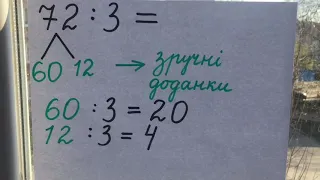 72 : 3 =
60 12 → зручні
доданки
60 : 3 = 20
12 : 3 = 4